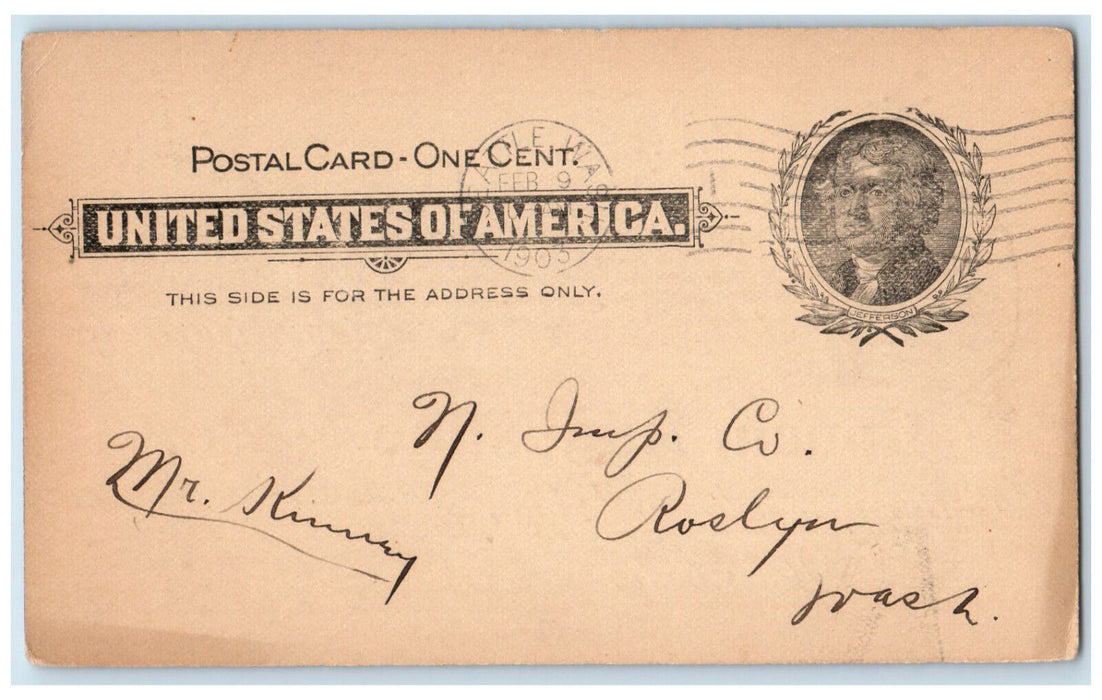 POSTAL CARD - ONE CENT.
UNITED STATES OF AMERICA.
THIS SIDE IS FOR THE ADDRESS ONLY.
ATTLE WAS
FEB 9
1903
JEFFERSON
N. Imp. Co.
Mr. Kinney
Roslyn
Wash.